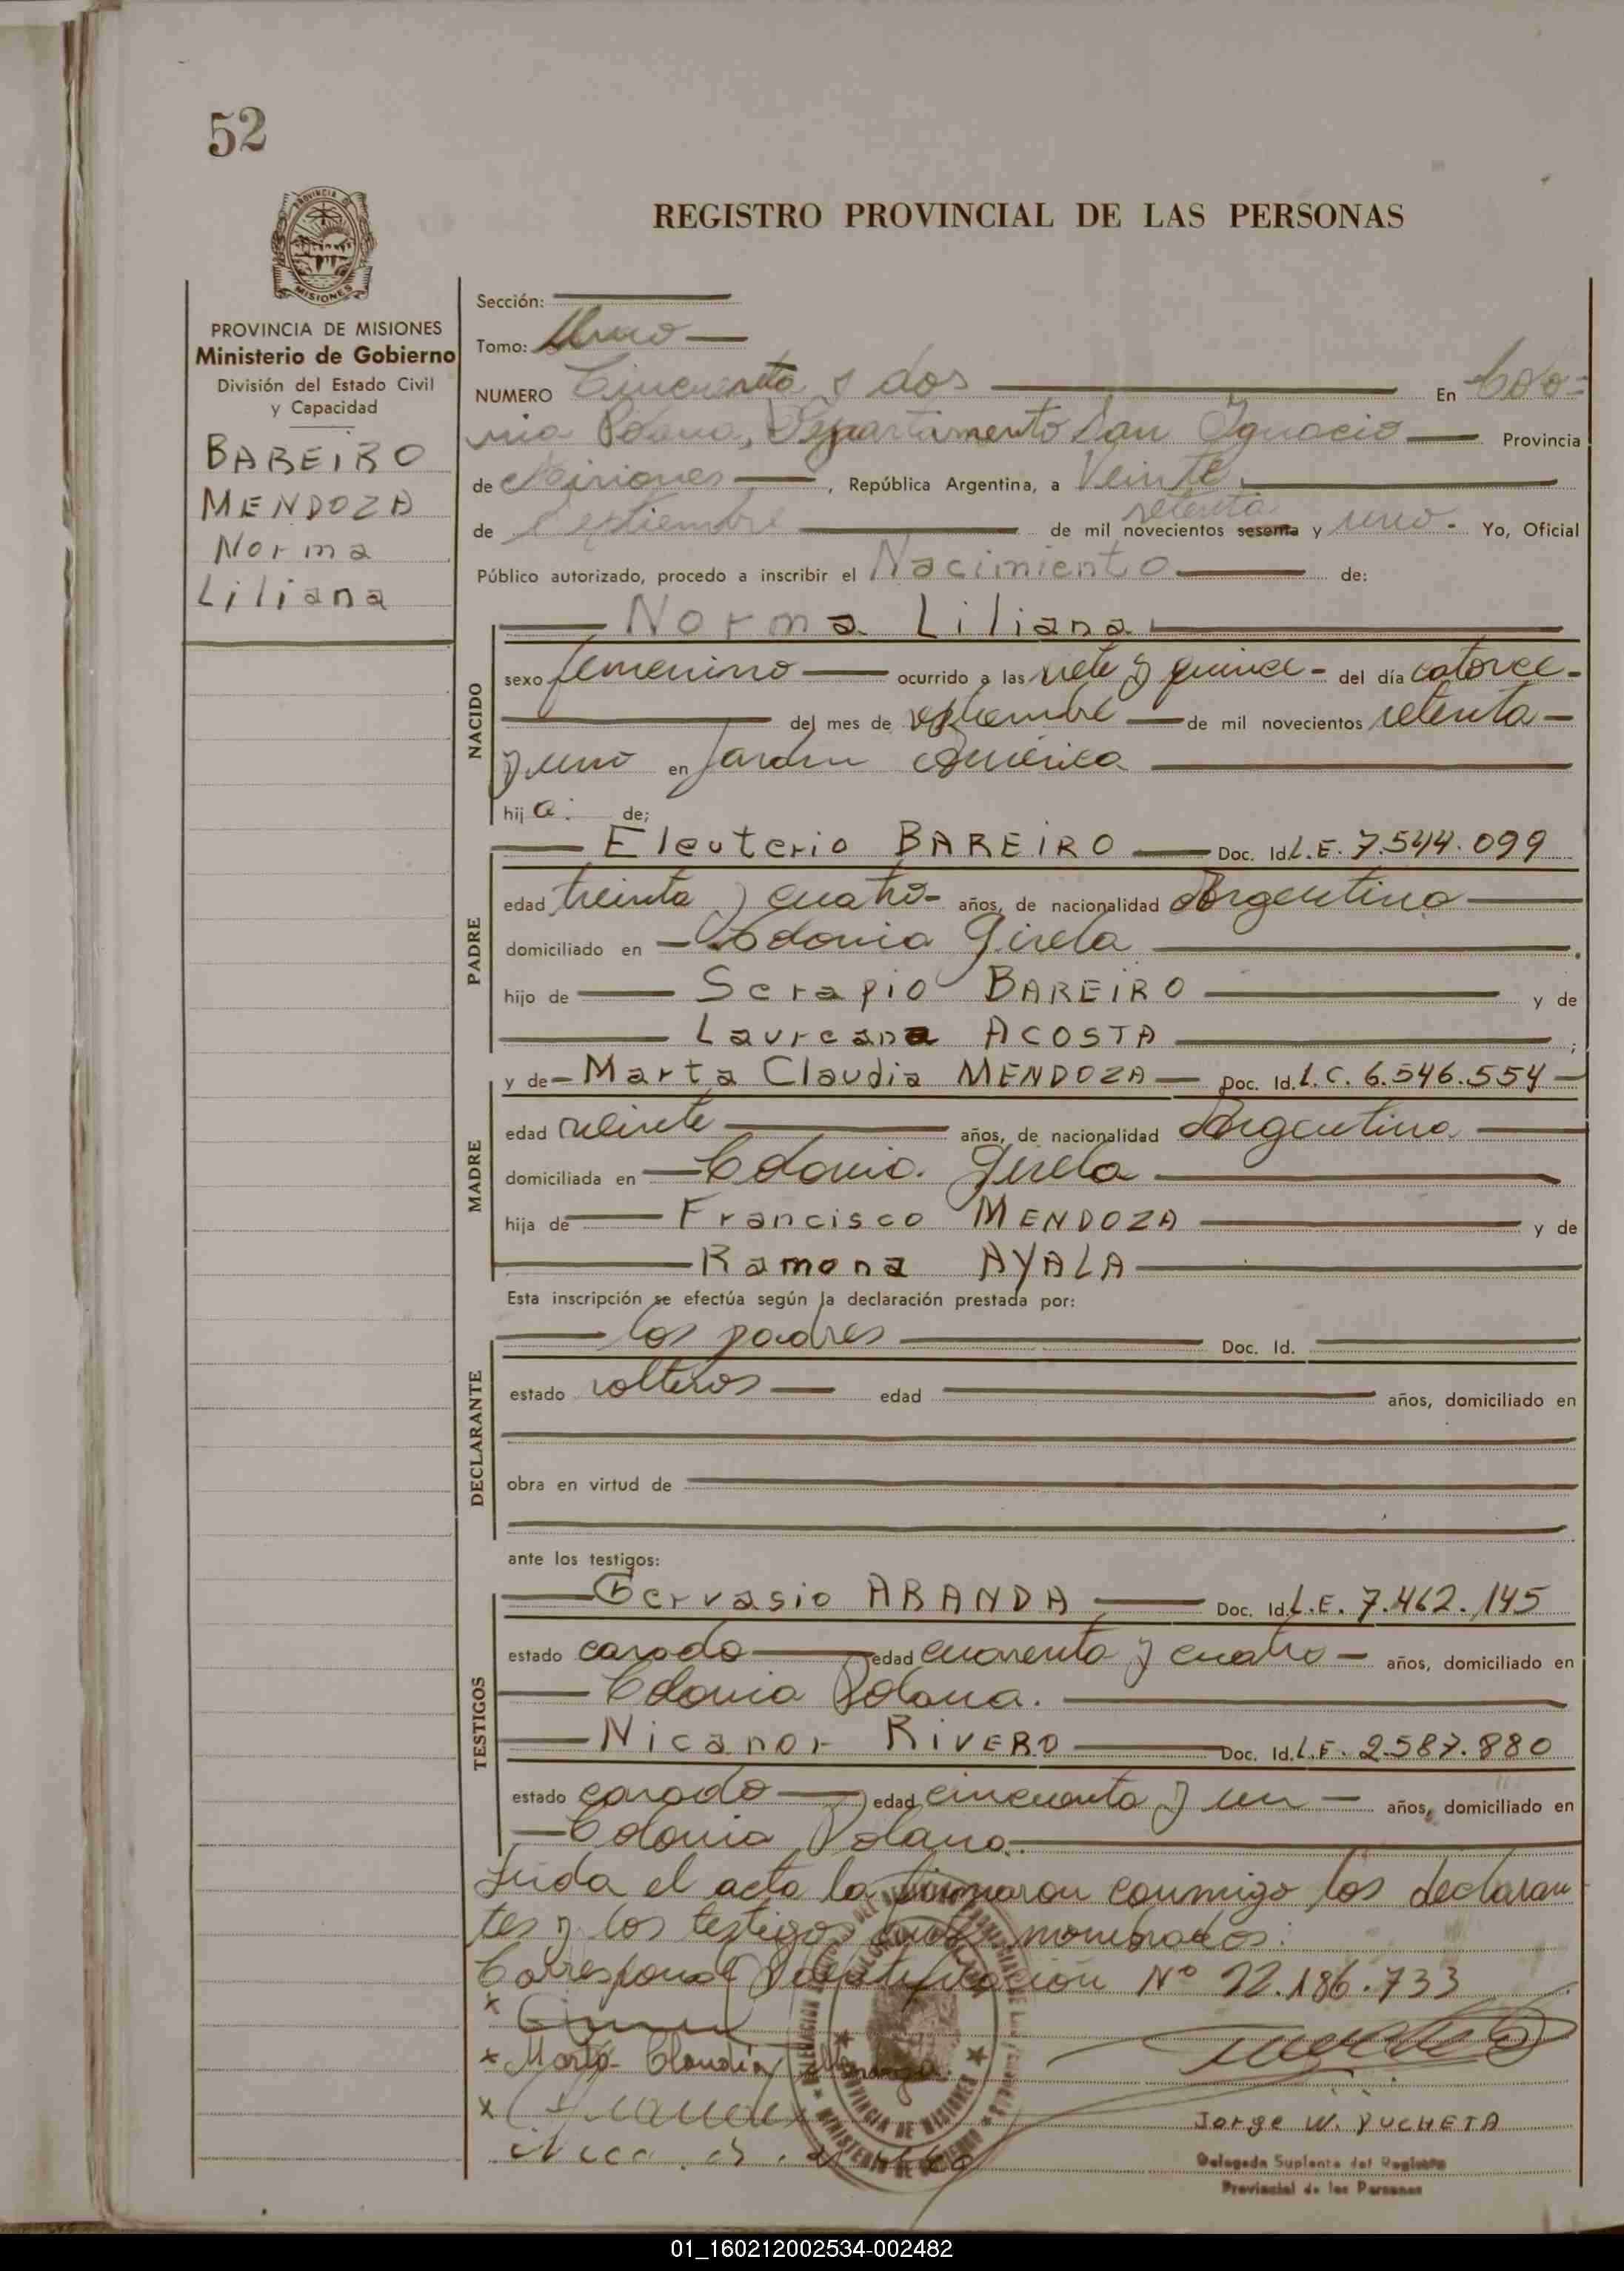 52
REGISTRO PROVINCIAL DE LAS PERSONAS
PROVINCIA DE MISIONES
Ministerio de Gobierno
División del Estado Civil
y Capacidad
BAREIRO
MENDOZA
Norma
Liliana
Sección:
Tomo: Uno
NUMERO Cincuenta y dos En Colo-
nia Polana, Departamento San Ignacio Provincia
de Misiones, República Argentina, a Veinte
de Septiembre de mil novecientos setenta sesenta y uno- Yo, Oficial
Público autorizado, procedo a inscribir el Nacimiento de:
NACIDO
Norma Liliana
sexo femenino ocurrido a las siete y quince- del día catorce-
del mes de septiembre de mil novecientos setenta-
y uno en Jardín América
hija. de;
PADRE
Eleuterio BAREIRO Doc. Id. L.E. 7.544.099
edad treinta y cuatro- años, de nacionalidad Argentina
domiciliado en Colonia Gisela
hijo de Serapio BAREIRO y de
Laureana ACOSTA ;
MADRE
y de Marta Claudia MENDOZA Doc. Id. L.C. 6.546.554
edad veinte años, de nacionalidad Argentina
domiciliada en Colonia Gisela
hija de Francisco MENDOZA y de
Ramona AYALA
Esta inscripción se efectúa según la declaración prestada por:
DECLARANTE
los padres Doc. Id.
estado solteros edad años, domiciliado en
obra en virtud de
ante los testigos:
TESTIGOS
Gervasio ARANDA Doc. Id. L.E. 7.462.145
estado casado edad cuarenta y cuatro- años, domiciliado en
Colonia Polana.
Nicanor RIVERO Doc. Id. L.E. 2.587.880
estado casado edad cincuenta y un- años, domiciliado en
Colonia Polana.
Leída el acta la firmaron conmigo los declaran
tes y los testigos antes nombrados:
Corresponde Identificación Nº 22.186.733
x
x Marta Claudia Mendoza
x
Jorge W. PUCHETA
Delegado Suplente del Registro
Provincial de las Personas
PROVINCIA DE MISIONES
MINISTERIO DE GOBIERNO
01_160212002534-002482